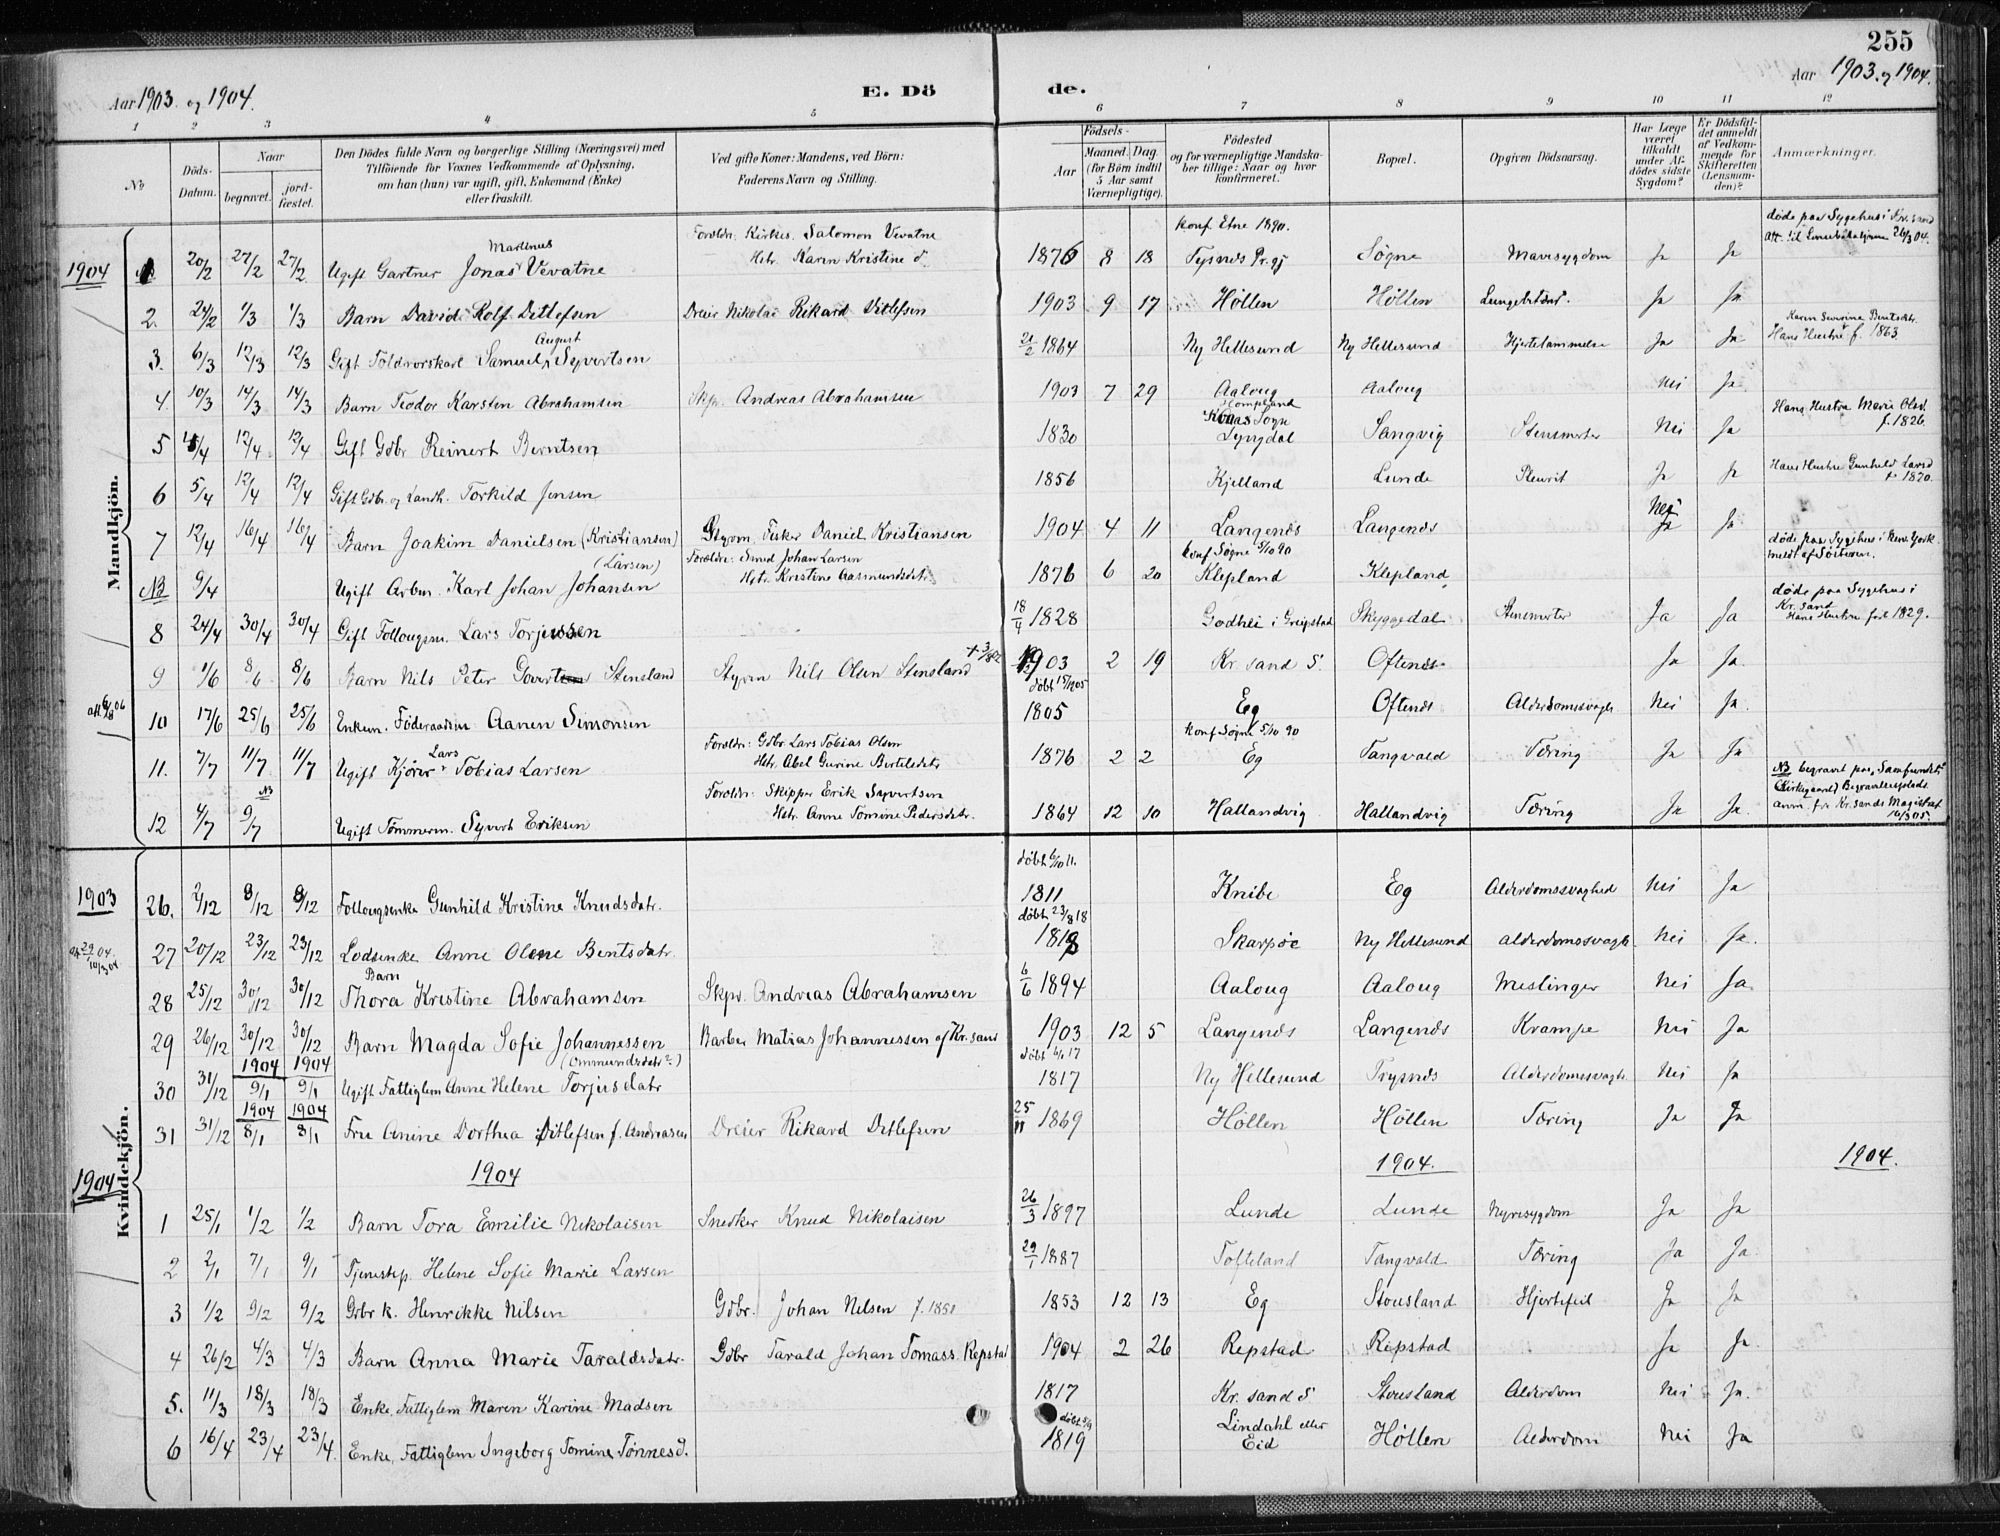 255
Aar 1903. og 1904.
E. Dö
de.
Aar 1903. og 1904.
1 2 3 4 5 6 7 8 9 10 11 12
No
Döds-Datum.
Naar
begravet.
jordfæstet.
Den Dödes fulde Navn og borgerlige Stilling (Næringsvei) med
Tilföiende for Voxnes Vedkommende af Oplysning,
om han (hun) var ugift, gift, Enkemand (Enke)
eller fraskilt.
Ved gifte Koner: Mandens, ved Börn:
Faderens Navn og Stilling.
Födsels-
Aar
Maaned. Dag
(for Börn indtil
5 Aar samt
Værnepligtige).
Födested
og for værnepligtige Mandskaber tillige: Naar og hvor
konfirmeret.
Bopæl.
Opgiven Dödsaarsag.
Har Læge
været
tilkaldt
under Afdödes sidste
Sygdom?
Er Dödsfaldet anmeldt
af Vedkommende for
Skifteretten
(Lensmanden)?
Anmærkninger.
Mandkjön.
1904
20/2 27/2 27/2 Ugift Gartner Jonas Martinus Vevatne Foreldr: Kirkes. Salomon Vevatne Htr. Karen Kristine d. 1876 8 18 konf. Etne 1890. Tysnes Pr.gj Søgne Mavesygdom Ja Ja døde paa Sygehus i Kr.sand
2. 24/2 1/3 1/3 Barn David Rolf Ditlefsen Dreier Nikolai Rikard Ditlefsen 1903 9 17 Höllen Höllen Lungebetænd. Ja Ja
3. 6/3 12/3 12/3 Gift Toldrorskarl Samuel August Syvertsen 21/2 1864 Ny Hellesund Ny Hellesund Hjertelammelse Ja Ja Karen Severine Bentsdtr. Hans Hustru f. 1863.
4. 10/3 14/3 14/3 Barn Teodor Karsten Abrahamsen Skp. Andreas Abrahamsen 1903 7 29 Aaloug Aaloug Nei Ja
5 4/4 12/4 12/4 Gift Gdbr Reinert Berntsen 1830 Kvaas Sogn Lyngdal Sangvig Stensmerter Nei Ja Hans Hustru Marie Olsd. f. 1826.
6 5/4 12/4 12/4 Gift Gdbr. og Landh. Torkild Jensen 1856 Kjelland Lunde Pleurit Ja Ja Hans Hustru Gunhild Larsd
7 12/4 16/4 16/4 Barn Joakim Danielsen (Kristiansen) Styrm. Fisker Daniel Kristiansen 1904 4 11 Langenes Langenes Nei Ja Ja
NB 9/4 Ugift Arbm. Karl Johan Johansen (Larsen) Foreldr: Smed Johan Larsen Htr. Kristine Aasmundsdatr. 1876 6 20 konf Søgne 5/10 90 Klepland Klepland døde paa Sygehus i New York meldt af Søsteren.
8 24/4 30/4 30/4 Gift Follougsm. Lars Torjussen 18/4 1828 Godhei i Greipstad Skyggedal Stensmerter Ja Ja døde paa Sygehus i Kr.sand Hans Hustru født 1829.
9 1/6 8/6 8/6 Barn Nils Peter Govertsen Stensland Styrm Nils Olsen Stensland 1903 2 19 Kr.sand S. Oftenes Ja Ja
10 17/6 25/6 25/6 Enkem. Föderaadsm. Aanen Simonsen 1805 Eg Oftenes Alderdomssvagh. Nei Ja.
11. 7/7 11/7 11/7 Ugift Kjører Lars Tobias Larsen Foreldr: Gdbr. Lars Tobias Olsen Htr. Abel Gurine Bertelsdtr 1876 2 2 konf Søgne 5/10 90 Eg Tangvald Tæring Ja Ja
12 4/7 NB 9/7 Ugift Tömmerm. Syvert Eriksen Foreldr: Skipper Erik Syvertsen Htr. Anne Tomine Pedersdtr. 1864 12 10 Hallandvig Hallandvig Tæring Ja Ja NB begravet paa "Samfundets" (Kirkegaard) Begravelsesplads. anm. fra Kr.sands Magistrat 16/3 05.
Kvindekjön.
1903
26. 2/12 8/12 8/12 Follougsenke Gunhild Kristine Knudsdatr. døbt 6/10 11. 1811 Knibe Eg Alderdomssvaghed Nei Ja
27 20/12 23/12 23/12 Lodsenke Anne Olene Bentsdatr. døbt 23/8 18 1818 Skarpøe Ny Hellesund Alderdomssvagh. Nei Ja.
28 25/12 30/12 30/12 Barn Thora Kristine Abrahamsen Skpr. Andreas Abrahamsen 6/6 1894 Aaloug Aaloug Meslinger Nei Ja.
29 26/12 30/12 30/12 Barn Magda Sofie Johannessen Barber Matias Johannessen af Kr.sand 1903 12 5 Langenes Langenes Krampe Nei Ja
30 31/12 1904 9/1 1904 9/1 Ugift Fattiglem Anne Helene Torjusdatr (Ommundsdatr?) 1817 Ny Hellesund Trysnes Alderdomssvagh. Nei Ja
31 31/12 1904 8/1 1904 8/1 Fru Anine Dorthea Ditlefsen f. Andreasen Dreier Rikard Ditlefsen 25/11 1869 Höllen Höllen Tæring Ja Ja
1904 1904 1904. 1904.
1 25/1 1/2 1/2 Barn Tora Emilie Nikolaisen Snedker Knud Nikolaisen 26/3 1897 Lunde Lunde Nyresygdom Ja Ja
2 2/1 7/1 9/1 Tjenestep. Helene Sofie Marie Larsen 29/1 1887 Tofteland Tangvald Tæring Ja Ja
3 1/2 9/2 9/2 Gdbr k. Henrikke Nilsen Gdbr. Johan Nilsen f. 1851 1853 12 13 Eg Stousland Hjertefeil Ja Ja
4 26/2 4/3 4/3 Barn Anna Marie Taraldsdatr. Gdbr Tarald Johan Tomass. Repstad 1904 2 26 Repstad Repstad Ja Ja.
5. 11/3 18/3 18/3 Enke, Fattiglem Maren Karine Madsen 1817 Kr.sand S Stousland Alderdom Nei Ja.
6 16/4 23/4 23/4 Enke, Fattiglem Ingeborg Tomine Tønnesd. 1819 Lindahl eller Eid Höllen Alderdom Nei Ja